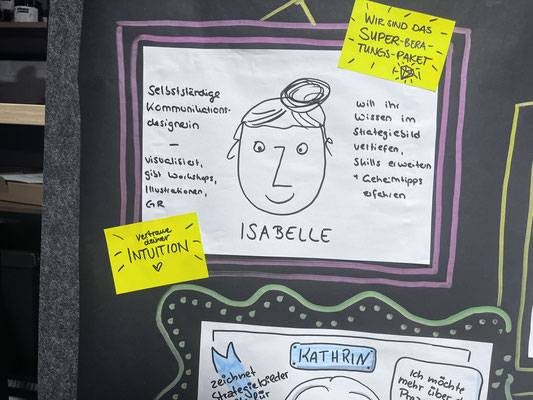 WIR SIND DAS
SUPER-BERA-
TUNGS-PAKET
Selbstständige
Kommunikations-
designerin
–
visualisiert,
gibt Workshops,
Illustrationen,
GR
will ihr
Wissen im
Strategiebild
vertiefen,
Skills erweitern
+ Geheimtipps
erfahren
ISABELLE
Vertraue
deiner
INTUITION
KATHRIN
zeichnet
Strategiebilder
für
Ich möchte
mehr über d